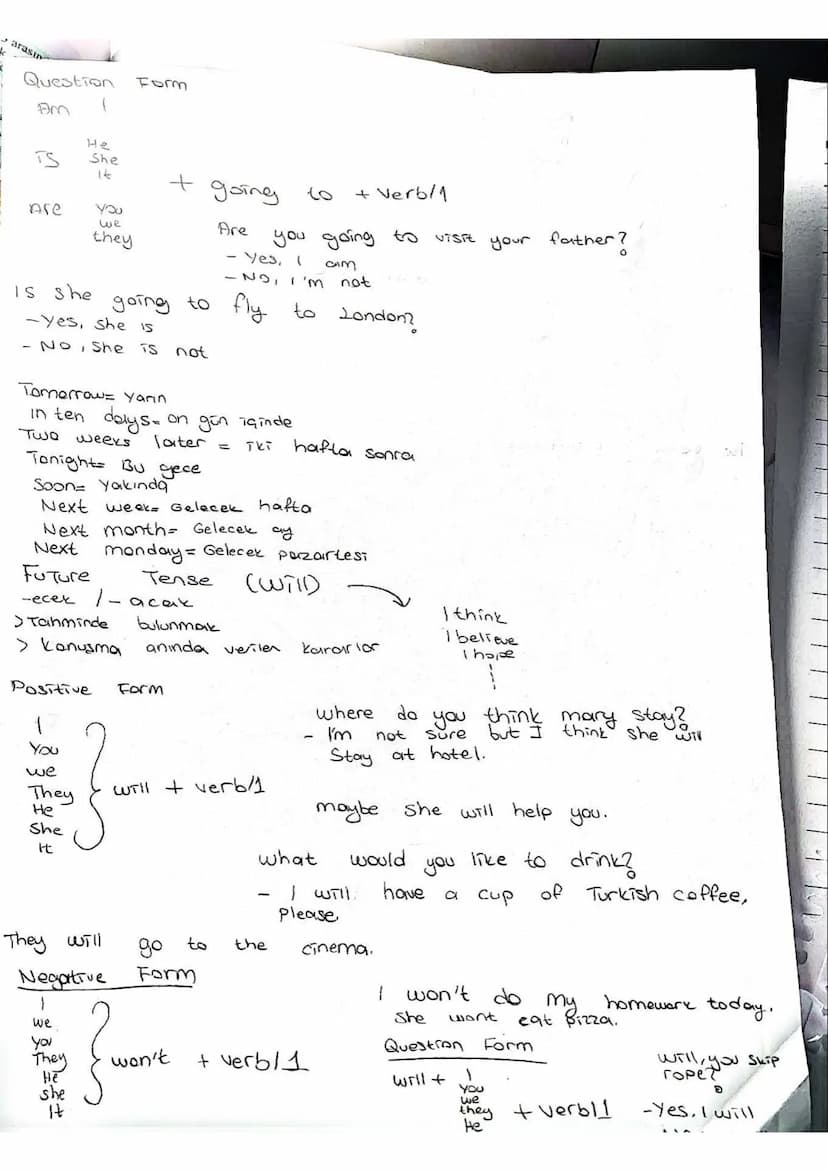 Question Form
Am I
Is He
She
It
+ going to + verb/1
Are you
we
they
Are you going to visit your father?
- Yes, I am
- No, I'm not
Is she going to fly to London?
- Yes, she is
- No, she is not
Tomorrow= Yarın
In ten days= on gün içinde
Two weeks later = iki hafta sonra
Tonight= Bu gece
Soon= Yakında
Next week= Gelecek hafta
Next month= Gelecek ay
Next monday= Gelecek pazartesi
Future Tense (Will)
-ecek / -acak
> Tahminde bulunmak
> Konuşma anında verilen kararlar
I think
I believe
I hope
Positive Form
I
You
we
They
He
She
It
will + verb/1
where do you think mary stay?
- I'm not sure but I think she will
Stay at hotel.
maybe she will help you.
what would you like to drink?
- I will have a cup of Turkish coffee,
please
They will go to the cinema.
Negative Form
I
we
you
They
He
she
It
won't + verb/1
I won't do my homework today.
She wont eat pizza.
Question Form
will + I
you
we
they
He
+ verb/1
will, you skip
rope?
- Yes, I will